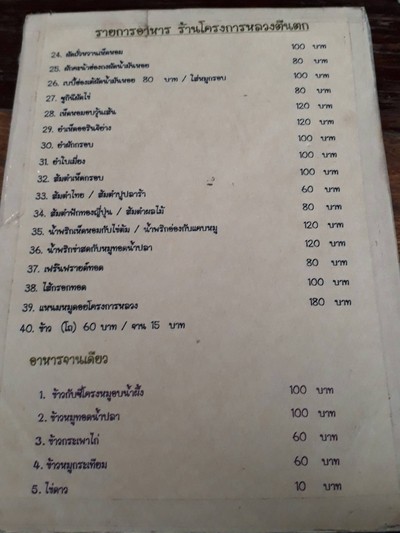 รายการอาหาร ร้านโครงการหลวงตีนตก
24. ผัดเปรี้ยวหวานเห็ดหอม 100 บาท
25. ผักคะน้าฮ่องกงผัดน้ำมันหอย 80 บาท
26. เบบี้ฮ่องเต้ผัดน้ำมันหอย 80 บาท / ใส่หมูกรอบ 100 บาท
27. ซูกินีผัดไข่ 80 บาท
28. เห็ดหอมอบวุ้นเส้น 120 บาท
29. ยำเห็ดออรินจิย่าง 120 บาท
30. ยำผักกรอบ 100 บาท
31. ยำใบเมี่ยง 100 บาท
32. ส้มตำเห็ดกรอบ 100 บาท
33. ส้มตำไทย / ส้มตำปูปลาร้า 60 บาท
34. ส้มตำฟักทองญี่ปุ่น / ส้มตำผลไม้ 80 บาท
35. น้ำพริกเห็ดหอมกับไข่ต้ม / น้ำพริกอ่องกับแคบหมู 120 บาท
36. น้ำพริกข่าสดกับหมูทอดน้ำปลา 120 บาท
37. เฟร้นฟรายด์ทอด 80 บาท
38. ไส้กรอกทอด 100 บาท
39. แหนมหมูดอยโครงการหลวง 180 บาท
40. ข้าว (โถ) 60 บาท / จาน 15 บาท
อาหารจานเดียว
1. ข้าวกับซี่โครงหมูอบน้ำผึ้ง 100 บาท
2. ข้าวหมูทอดน้ำปลา 100 บาท
3. ข้าวกระเพาไก่ 60 บาท
4. ข้าวหมูกระเทียม 60 บาท
5. ไข่ดาว 10 บาท